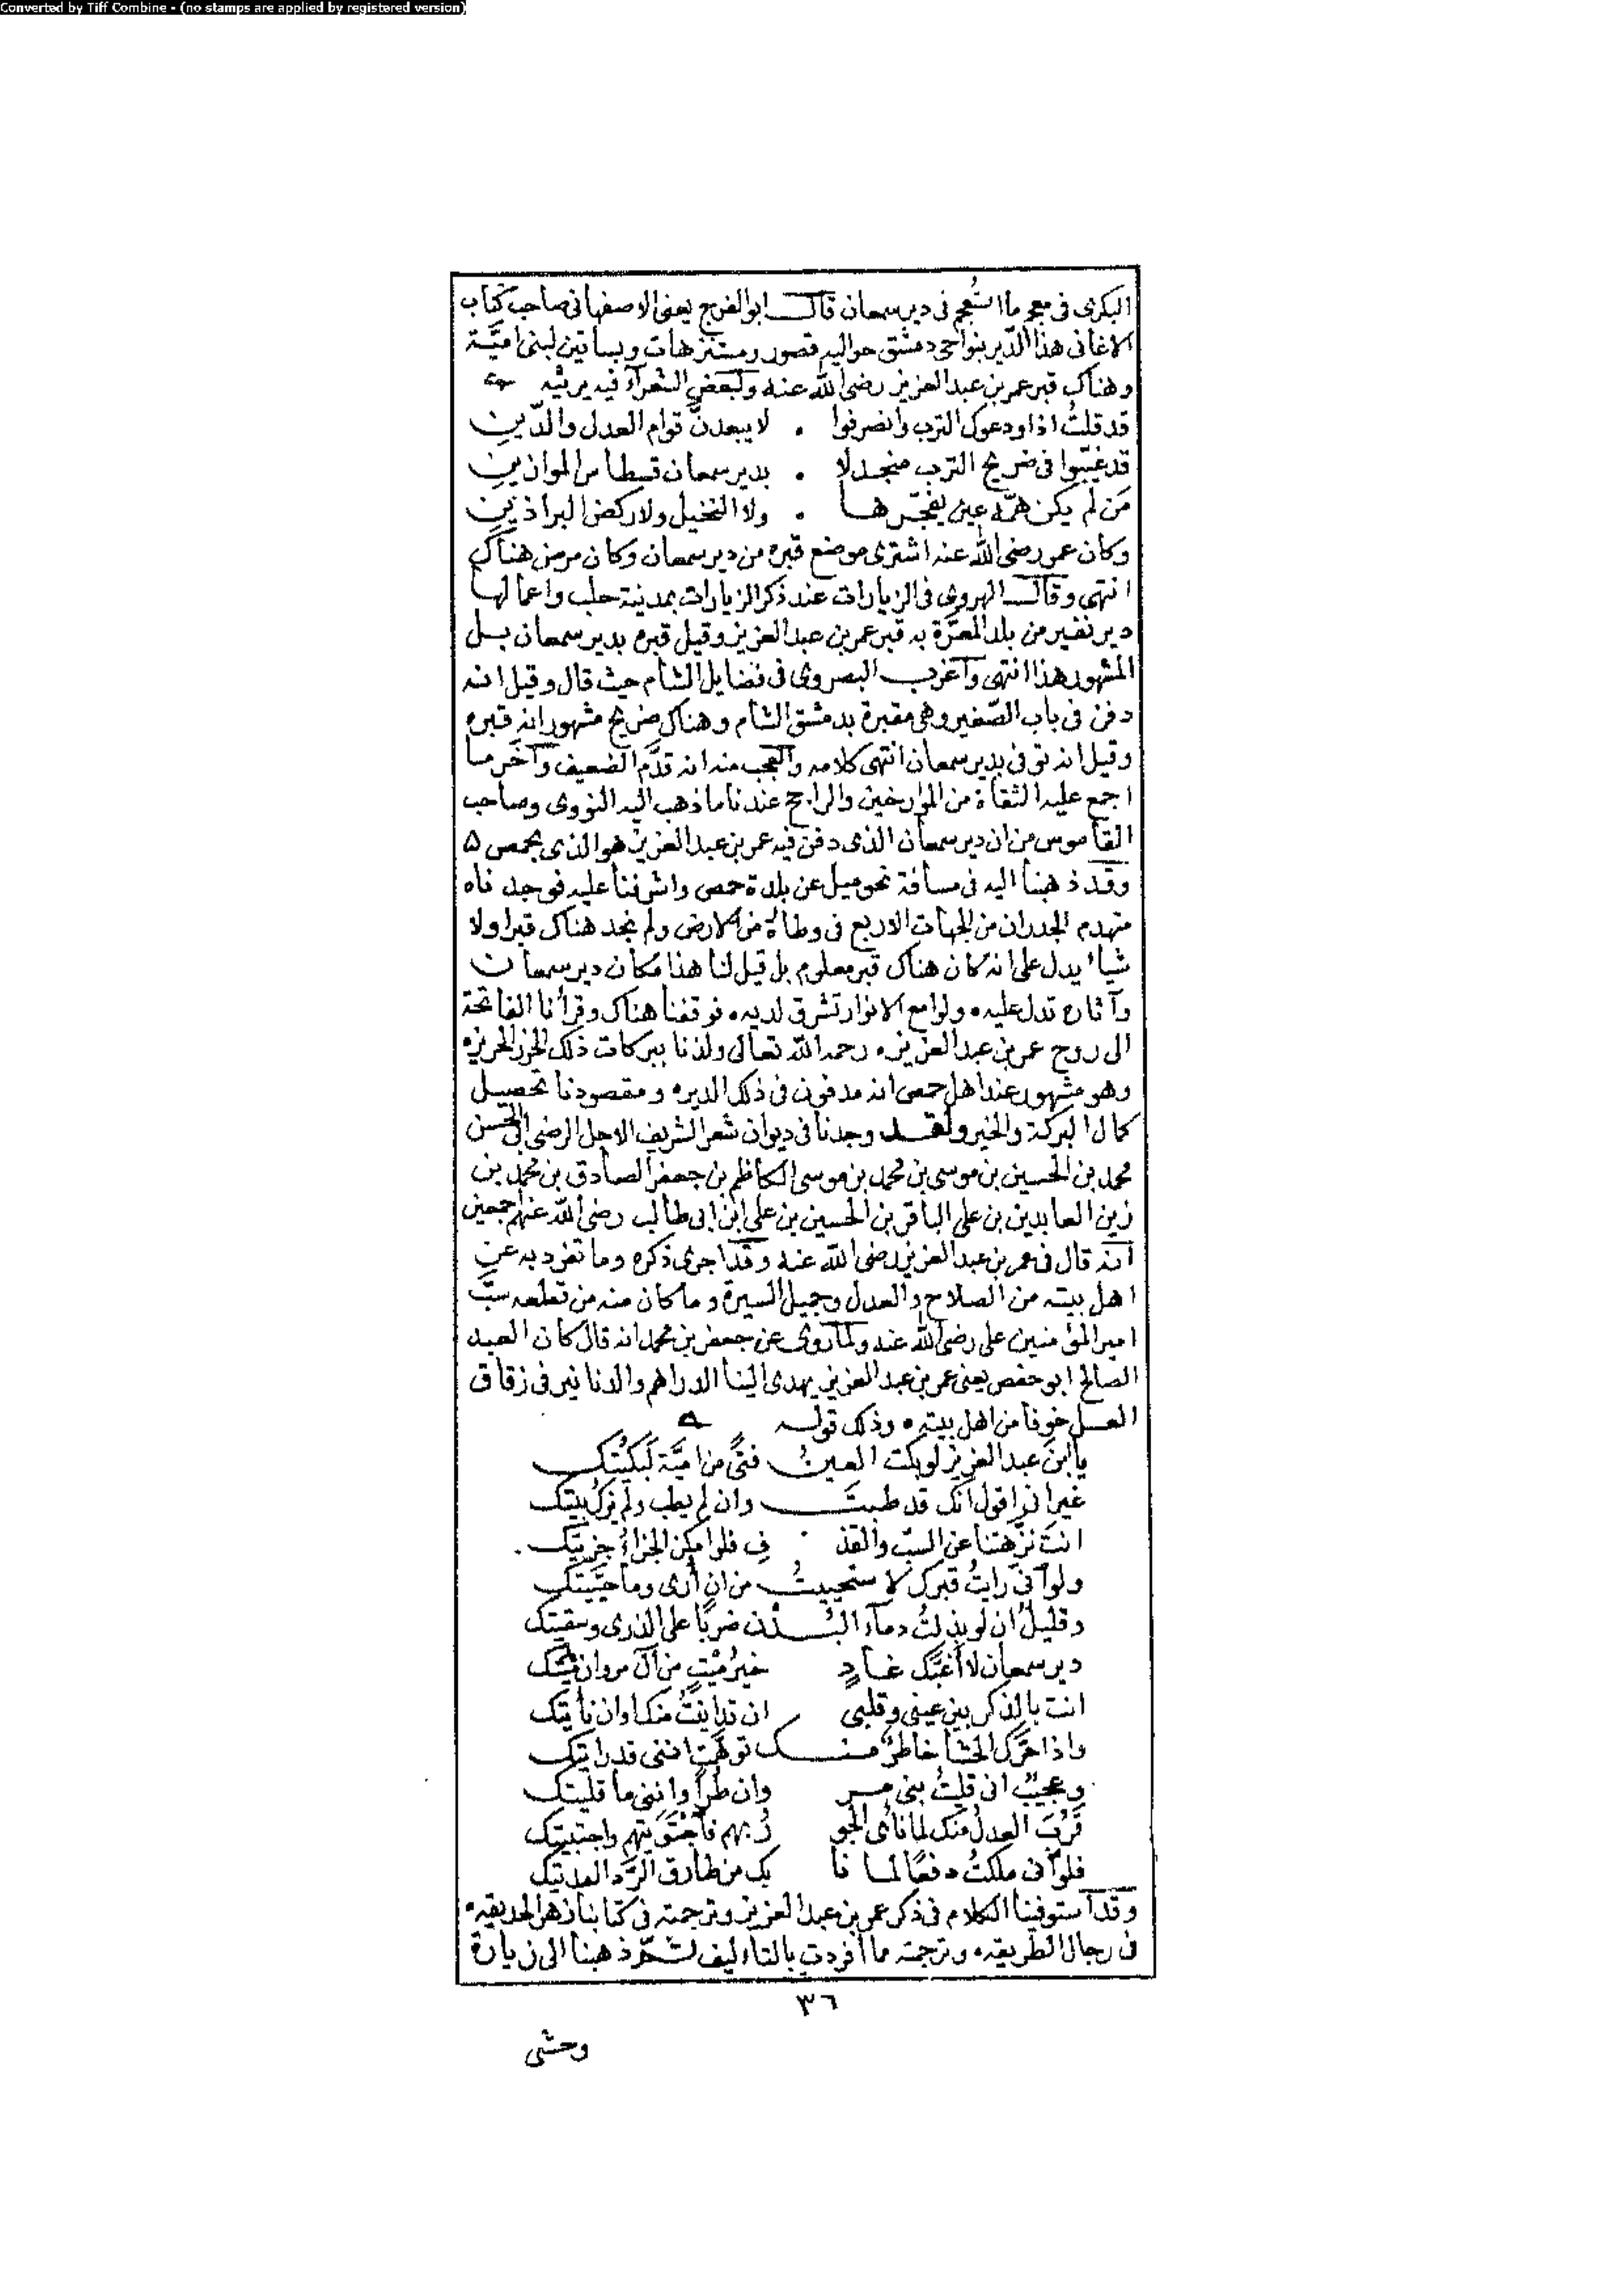 Converted by Tiff Combine - (no stamps are applied by registered version)
البكرى فى معجم ما استُعجم فى دير سمعان قال ابو الفرج يعنى الاصفهانى صاحب كتاب
الاغانى هذا الدّير بنواحى دمشق حواليه قصور ومتنزهات وبساتين لبنى اميّة
وهناك قبر عمر بن عبد العزيز رضى الله عنه ولبعض الشعرآء فيه يرثيه
قد قلتُ اذ اودعوك الترب وانصرفوا . لا يبعدنّ قوام العدل والدّين
قد غيّبوا فى ضريح الترب منجدلا . بدير سمعان قسطاس الموازين
مَن لم يكن همّه عين يفجّرها . ولا النخيل ولا ركض البراذين
وكان عمر رضى الله عنه اشترى موضع قبره من دير سمعان وكان مرض هناك
انتهى وقال الهروى فى الزيارات عند ذكر الزيارات بمدينة حلب واعمالها
دير نفير من بلد المعرّة به قبر عمر بن عبد العزيز وقيل قبره بدير سمعان بل
المشهور هذا انتهى وآغرب البصروى فى فضايل الشام حيث قال وقيل انه
دفن فى باب الصّغير وهى مقبرة بدمشق الشام وهناك ضريح مشهور انه قبره
وقيل انه توفى بدير سمعان انتهى كلامه والعجب منه انه قدّم الضعيف وآخر ما
اجمع عليه الثقاة من المؤرخين والراجح عندنا ما ذهب اليه النووى وصاحب
القاموس من ان دير سمعان الذى دفن فيه عمر بن عبد العزيز هو الذى بحمص ٥
وقد ذهبنا اليه فى مسافة نحو ميل عن بلدة حمص واشرفنا عليه فوجدناه
متهدم الجدران من الجهات الاربع فى وطاءة من الارض ولم نجد هناك قبرا ولا
شيأ يدل على انه كان هناك قبر معلوم بل قيل لنا هذا مكان دير سمعان
وآثاره تدل عليه ٠ ولوامع الانوار تشرق لديه ٠ فوقفنا هناك وقرأنا الفاتحة
الى روح عمر بن عبد العزيز ٠ رحمه الله تعالى ولذنا ببركات ذلك الحرز الحريز ٠
وهو مشهور عند اهل حمص انه مدفون فى ذلك الدير ٠ ومقصودنا تحصيل
كمال البركة والخير ولقد وجدنا فى ديوان شعر الشريف الاجل الرضى ابى الحسن
محمد بن الحسين بن موسى بن محمد بن موسى الكاظم بن جعفر الصادق بن محمد بن
زين العابدين بن على الباقر بن الحسين بن على ابن ابى طالب رضى الله عنهم اجمعين
انه قال فى عمر بن عبد العزيز رضى الله عنه وقد اجرى ذكره وما تفرد به عن
اهل بيته من الصلاح والعدل وجميل السيرة وما كان منه من قطعه سبّ
امير المؤمنين على رضى الله عنه ولما روى عن جعفر بن محمد انه قال كان العبد
الصالح ابو حفص يعنى عمر بن عبد العزيز يهدى الينا الدراهم والدنانير فى زقاق
العسل خوفا من اهل بيته ٠ وذلك قوله
يا ابنَ عبد العزيز لو بكت العينُ فتىً من اميّة لبكيْتك
غير انى اقول انّك قد طبتَ وان لم يطب ولم يزكُ بيتك
انتَ نزّهتنا عن السبّ والقذ فِ فلو امكن الجزاءُ جزيْتك
ولو آنّى رايتُ قبرك لاستحييتُ من ان أُرى وما حيّيتك
وقليلٌ ان لو بذلتُ دمآء البُدْن ضربًا على الذرى وسقيتك
دير سمعان لا أغبّك غادٍ خيرُ مَيْتٍ من آل مروان مَيْتك
انت بالذكر بين عينى وقلبى ان تدانيتُ منك او ان نأيتك
واذا حرّك الحشا خاطرٌ منك توهّمت اننى قد رايتك
وعجيبٌ انى قليتُ بنى مر وان طُرًّا واننى ما قليتك
قَرُبَ العدلُ منك لما نأى الجو رُ بهم فاجْتَوَيتهم واجتبيتك
فلو آنى ملكتُ دفعًا لما نا بك من طارق الرّدا لفديتك
وقد آستوفينا الكلام فى ذكر عمر بن عبد العزيز وترجمته فى كتابنا زهر الحديقه ٠
فى رجال الطريقه ٠ وترجمته مما أفردت بالتاءليف ثمّ ذهبنا الى زيارة
٣٦
وحشى